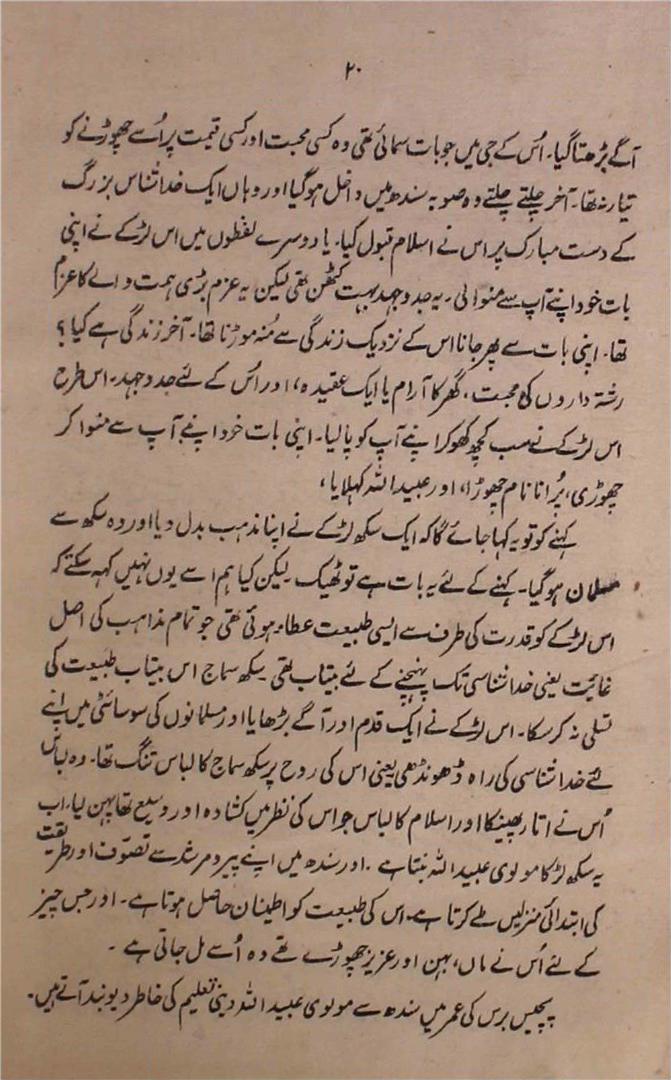 ۲۰
آگے بڑھتا گیا۔ اُس کے جی میں جو بات سمائی تھی وہ کسی محبت اور کسی قیمت پر اُسے چھوڑنے کو
تیار نہ تھا۔ آخر چلتے چلتے وہ صوبہ سندھ میں داخل ہو گیا اور وہاں ایک خدا شناس بزرگ
کے دست مبارک پر اس نے اسلام قبول کیا۔ یا دوسرے لفظوں میں اس لڑکے نے اپنی
بات خود اپنے آپ سے منوا لی۔ یہ جدوجہد بہت کٹھن تھی لیکن یہ عزم بڑی ہمت والے کا عزم
تھا۔ اپنی بات سے پھر جانا اس کے نزدیک زندگی سے مُنہ موڑنا تھا۔ آخر زندگی ہے کیا؟
رشتہ داروں کی محبت، گھر کا آرام یا ایک عقیدہ، اور اُس کے لئے جدوجہد۔ اس طرح
اس لڑکے نے سب کچھ کھو کر اپنے آپ کو پا لیا۔ اپنی بات خود اپنے آپ سے منوا کر
چھوڑی، پُرانا نام چھوڑا، اور عبید اللہ کہلایا،
کہنے کو تو یہ کہا جائے گا کہ ایک سکھ لڑکے نے اپنا مذہب بدل دیا اور وہ سکھ سے
مسلمان ہو گیا۔ کہنے کے لئے یہ بات ہے تو ٹھیک۔ لیکن کیا ہم اسے یوں نہیں کہہ سکتے کہ
اس لڑکے کو قدرت کی طرف سے ایسی طبیعت عطاء ہوئی تھی جو تمام مذاہب کی اصل
غائیت یعنی خدا شناسی تک پہنچنے کے لئے بیتاب تھی۔ سکھ سماج اس بیتاب طبیعت کی
تسلی نہ کر سکا۔ اس لڑکے نے ایک قدم اور آگے بڑھایا اور مسلمانوں کی سوسائٹی میں اپنے
لئے خدا شناسی کی راہ ڈھونڈھی یعنی اس کی روح پر سکھ سماج کا لباس تنگ تھا۔ وہ لباس
اُس نے اتار پھینکا اور اسلام کا لباس جو اس کی نظر میں کشادہ اور وسیع تھا پہن لیا۔ اب
یہ سکھ لڑکا مولوی عبید اللہ بنتا ہے۔ اور سندھ میں اپنے پیر و مرشد سے تصوّف اور طریقت
کی ابتدائی منزلیں طے کرتا ہے۔ اس کی طبیعت کو اطینان حاصل ہوتا ہے۔ اور جس چیز
کے لئے اُس نے ماں، بہن اور عزیز چھوڑے تھے وہ اُسے مل جاتی ہے۔
پچیس برس کی عمر میں سندھ سے مولوی عبید اللہ دینی تعلیم کی خاطر دیوبند آتے ہیں۔